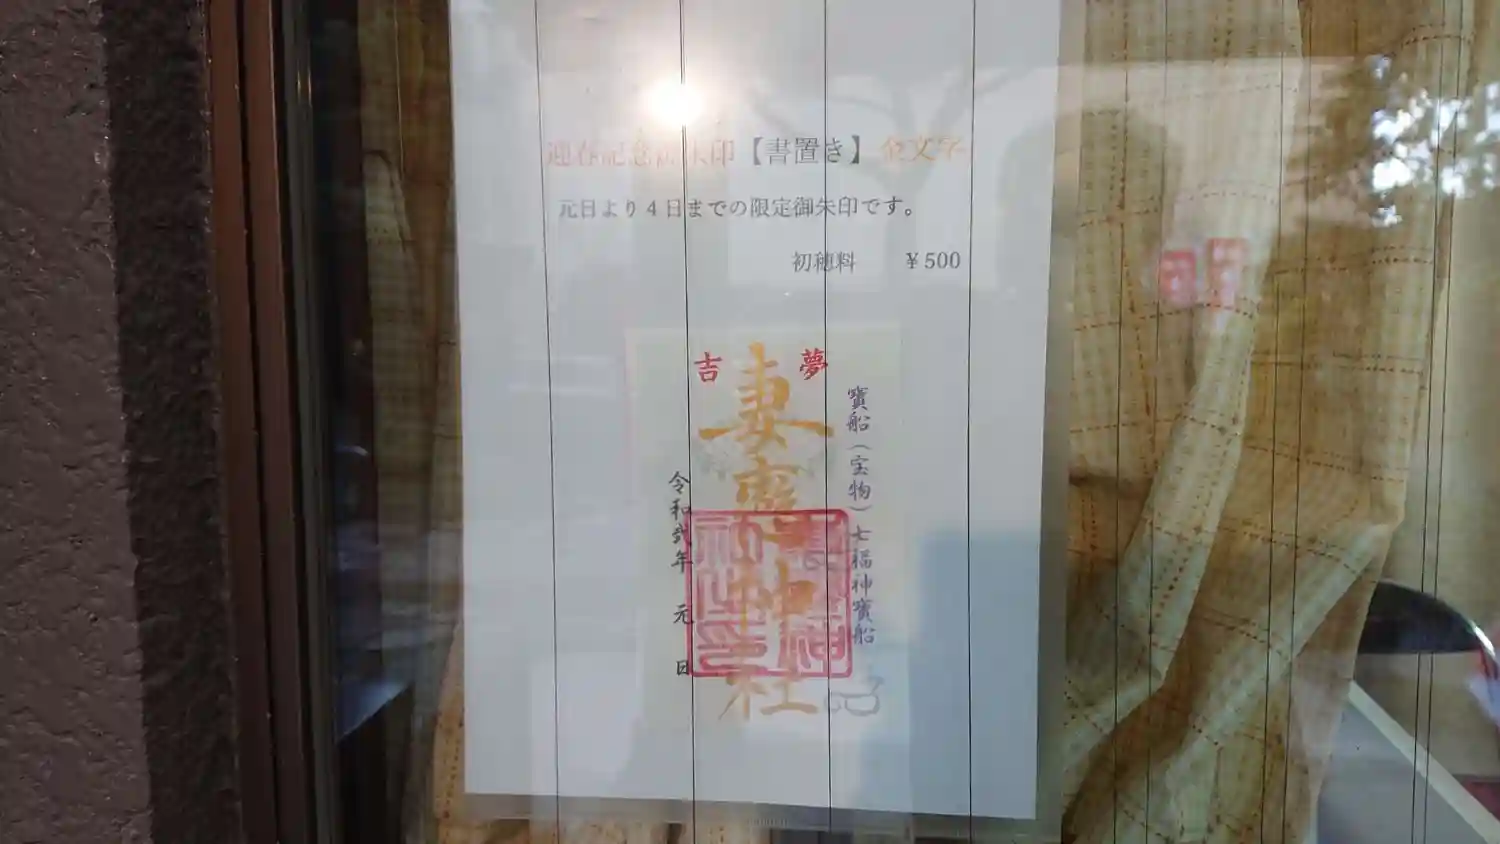 迎春記念御朱印【書置き】 金文字
元日より4日までの限定御朱印です。
初穂料 ￥500
夢
吉
寳船（宝物）七福神寳船
妻戀神社
令和弐年 元 日